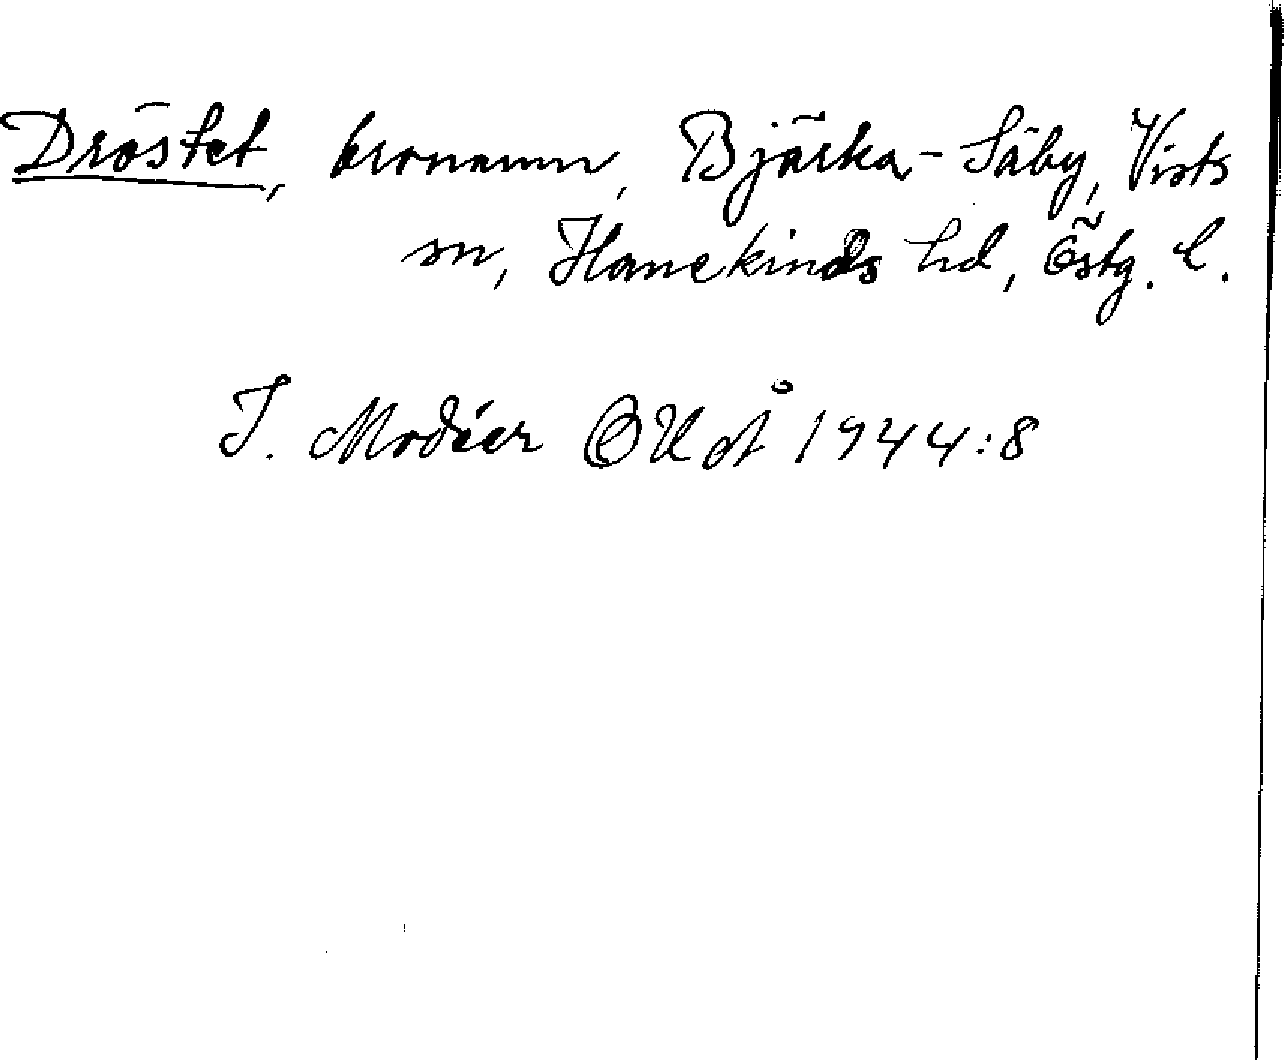 Dröstet, kronamn, Bjärka-Säby, Vists
sn, Hanekinds hd, Östg. l.
I. Modéer OUÅ 1944:8